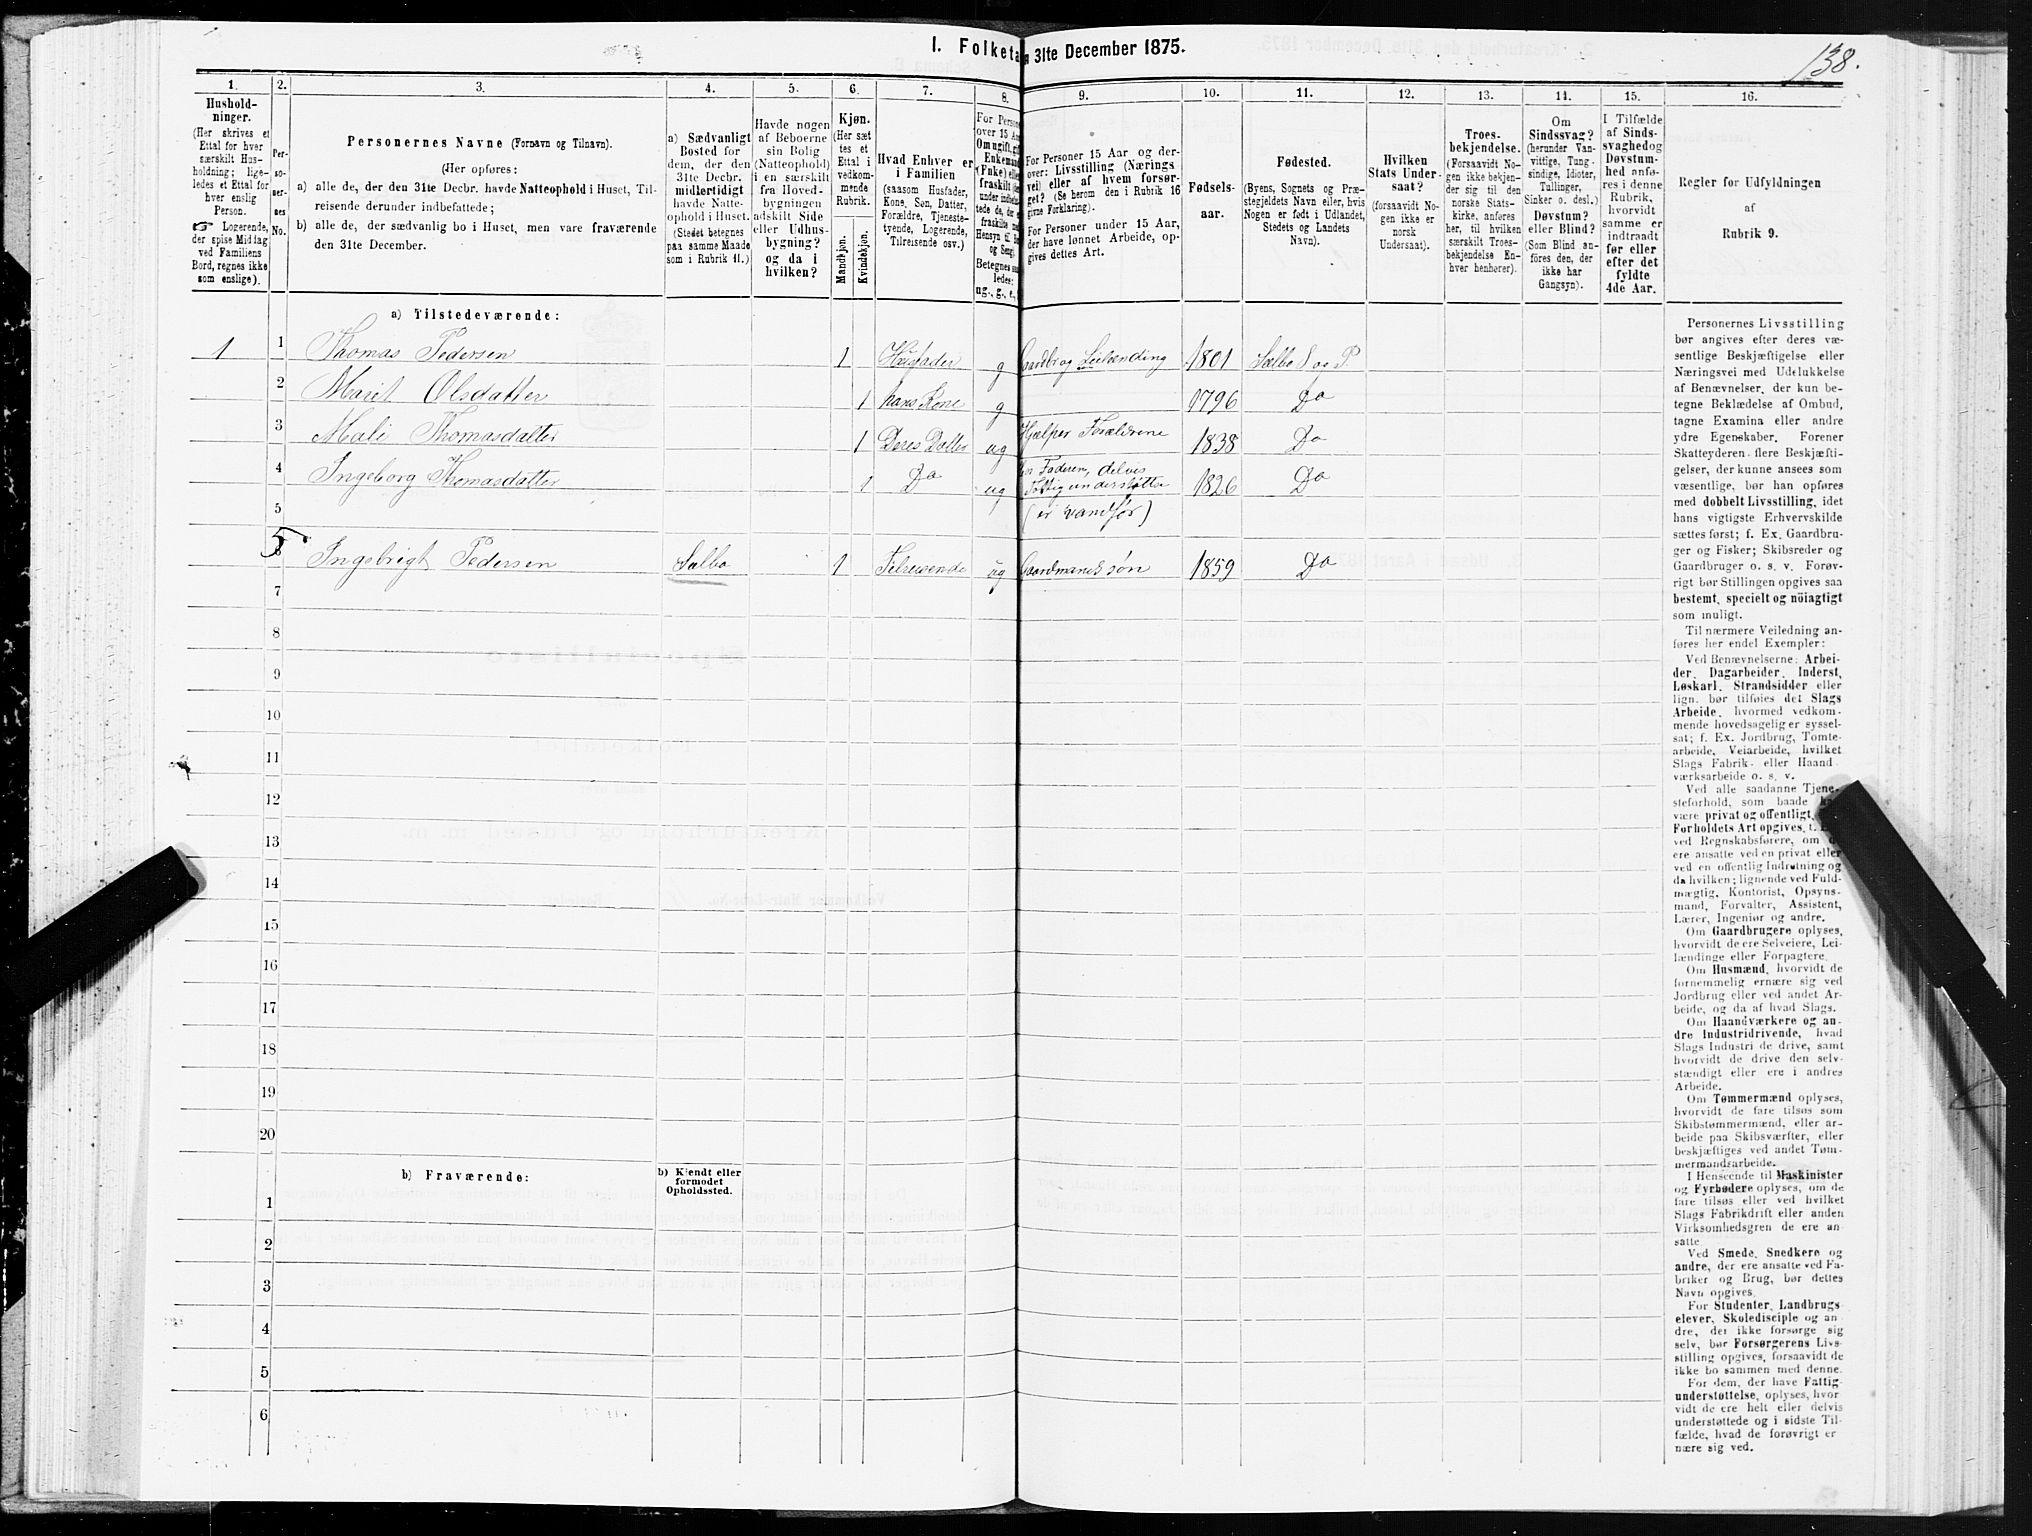 1. Folketa
n 31te December 1875.
138.
1.
2.
3.
4.
5.
6.
7.
8.
9.
10.
11.
12.
13.
14.
15.
16.
Hushold-
ninger.
(Her skrives et
Ettal for hver
særskilt Hus-
holdning; lige-
ledes et Ettal for
hver enslig
Person.
☞ Logerende,
der spise Middag
ved Familiens
Bord, regnes ikke
som enslige).
Per-
so-
ner-
nes
No.
Personernes Navne (Fornavn og Tilnavn).
(Her opføres:
a) alle de, der den 31te Decbr. havde Natteophold i Huset, Til-
reisende derunder indbefattede;
b) alle de, der sædvanlig bo i Huset, men vare fraværende
den 31te December.
a) Sædvanligt
Bosted for
dem, der den
31te Decbr.
midlertidigt
havde Natte-
ophold i Huset.
(Stedet betegnes
paa samme Maade
som i Rubrik 11.)
Havde nogen
af Beboerne
sin Bolig
(Natteophold)
i en særskilt
fra Hoved-
bygningen
adskilt Side
eller Udhus-
bygning?
og da i
hvilken?
Kjøn.
(Her sæt
tes et
Ettal i
vedkom-
mende
Rubrik.
Mandkjøn.
Kvindekjøn.
Hvad Enhver er
i Familien
(saasom Husfader,
Kone, Søn, Datter,
Forældre, Tjeneste-
tyende, Logerende,
Tilreisende osv.)
For Person
over 15 Aar
Om ugift, gift
Enkemand
(Enke) eller
fraskilt
Hensyn til
og Seng.
Betegnes saa
ledes:
ug., g., e.,
For Personer 15 Aar og der-
over: Livsstilling (Nærings
vei) eller af hvem forsør-
get? (Se herom den i Rubrik 16
givne Forklaring).
For Personer under 15 Aar,
der have lønnet Arbeide, op-
gives dettes Art.
Fødsels-
aar.
Fødested.
(Byens, Sognets og Præ-
stegjeldets Navn eller, hvis
Nogen er født i Udlandet,
Stedets og Landets
Navn).
Hvilken
Stats Under-
saat?
(forsaavidt No-
gen ikke er
norsk
Undersaat).
Troes-
bekjendelse.
(Forsaavidt No-
gen ikke bekjen-
der sig til den
norske Stats-
kirke, anføres
her, til hvilken
særskilt Troes-
bekjendelse En-
hver henhører).
Om
Sindssvag?
(herunder Van-
vittige, Tung-
sindige, Idioter,
Tullinger,
Sinker o. desl.)
Døvstum?
eller Blind?
(Som Blind an-
føres den, der
ikke har
Gangsyn).
I Tilfælde
af Sinds-
svaghed og
Døvstum-
hed anfø-
res i denne
Rubrik,
hvorvidt
samme er
indtraadt
før eller
efter det
fyldte
4de Aar.
Regler for Udfyldningen
af
Rubrik 9.
a) Tilstedeværende:
1 1 Thomas Pedersen 1 Husfader g Gaardbr og Leilænding 1801 Sælbo S og P.
2 Marit Olsdatter 1 hans Kone g 1796 Do
3 Mali Thomasdatter 1 Deres Datter ug Hjælper Forældrene 1838 Do
4 Ingeborg Thomasdatter 1 Do ug Faderen, delvis
Fattigunderstøtte 1826 Do
5 (er vandfør)
5 6 Ingebrigt Pedersen Sælbo 1 Tilreisende ug Gaardmands søn 1859 Do
7
8
9
10
11
12
13
14
15
16
17
18
19
20
b) Fraværende:
b) Kjendt eller
formodet
Opholdssted.
1
2
3
4
5
6
Personernes Livsstilling
bør angives efter deres væ-
sentlige Beskjæftigelse eller
Næringsvei med Udelukkelse
af Benævnelser, der kun be-
tegne Beklædelse af Ombud,
tagne Examina eller andre
ydre Egenskaber. Forener
Skatteyderen flere Beskjæfti-
gelser, der kunne ansees som
væsentlige, bør han opføres
med dobbelt Livsstilling, idet
hans vigtigste Erhvervskilde
sættes først; f. Ex. Gaardbru-
ger og Fisker; Skibsreder og
Gaardbruger o. s. v. Forøv-
rigt bør Stillingen opgives saa
bestemt, specielt og nöiagtigt
som muligt.
Til nærmere Veiledning an-
føres her endel Exempler:
Ved Benævnelserne: Arbei-
der, Dagarbeider, Inderst,
Løskarl, Strandsidder eller
lign. bør tilføies det Slags
Arbeide, hvormed vedkom-
mende hovedsagelig er syssel-
sat; f. Ex. Jordbrug, Tomte-
arbeide, Veiarbeide, hvilket
Slags Fabrik- eller Haand-
værksarbeide o. s. v.
Ved alle saadanne Tjene-
steforhold, som baade
være privat og offentligt,
Forholdets Art opgives,
ved Regnskabsførere, om
ere ansatte ved en privat eller
ved en offentlig Indretning og
da hvilken; lignende ved Fuld-
mægtig, Kontorist, Opsyns-
mand, Forvalter, Assistent,
Lærer, Ingeniør og andre.
Om Gaardbrugere oplyses,
hvorvidt de ere Selveiere, Lei-
lændinge eller Forpagtere.
Om Husmænd, hvorvidt de
fornemmelig ernære sig ved
Jordbrug eller ved andet Ar-
beide, og da af hvad Slags.
Om Haandværkere og an-
dre Industridrivende, hvad
Slags Industri de drive, samt
hvorvidt de drive den selv-
stændigt eller ere i andres
Arbeide.
Om Tømmermænd oplyses,
hvorvidt de fare tilsøs som
Skibstømmermænd, eller ar-
beide paa Skibsværfter, eller
beskjæftiges ved andet Tøm-
mermandsarbeide.
I Henseende til Maskinister
og Fyrbødere oplyses, om de
fare tilsøs eller ved hvilket
Slags Fabrikdrift eller anden
Virksomhedsgren de ere an-
satte.
Ved Smede, Snedkere og
andre, der ere ansatte ved Fa-
briker og Brug, bør dettes
Navn opgives.
For Studenter, Landbrugs-
elever, Skoledisciple og an-
dre, der ikke forsørge sig
selv, bør Forsørgerens Livs-
stilling opgives, forsaavidt de
ikke bo sammen med denne.
For dem, der have Fattig-
understøttelse, oplyses, hvor
vidt de ere helt eller delvis
understøttede og i sidste Til-
fælde, hvad de forøvrigt er
nære sig ved.